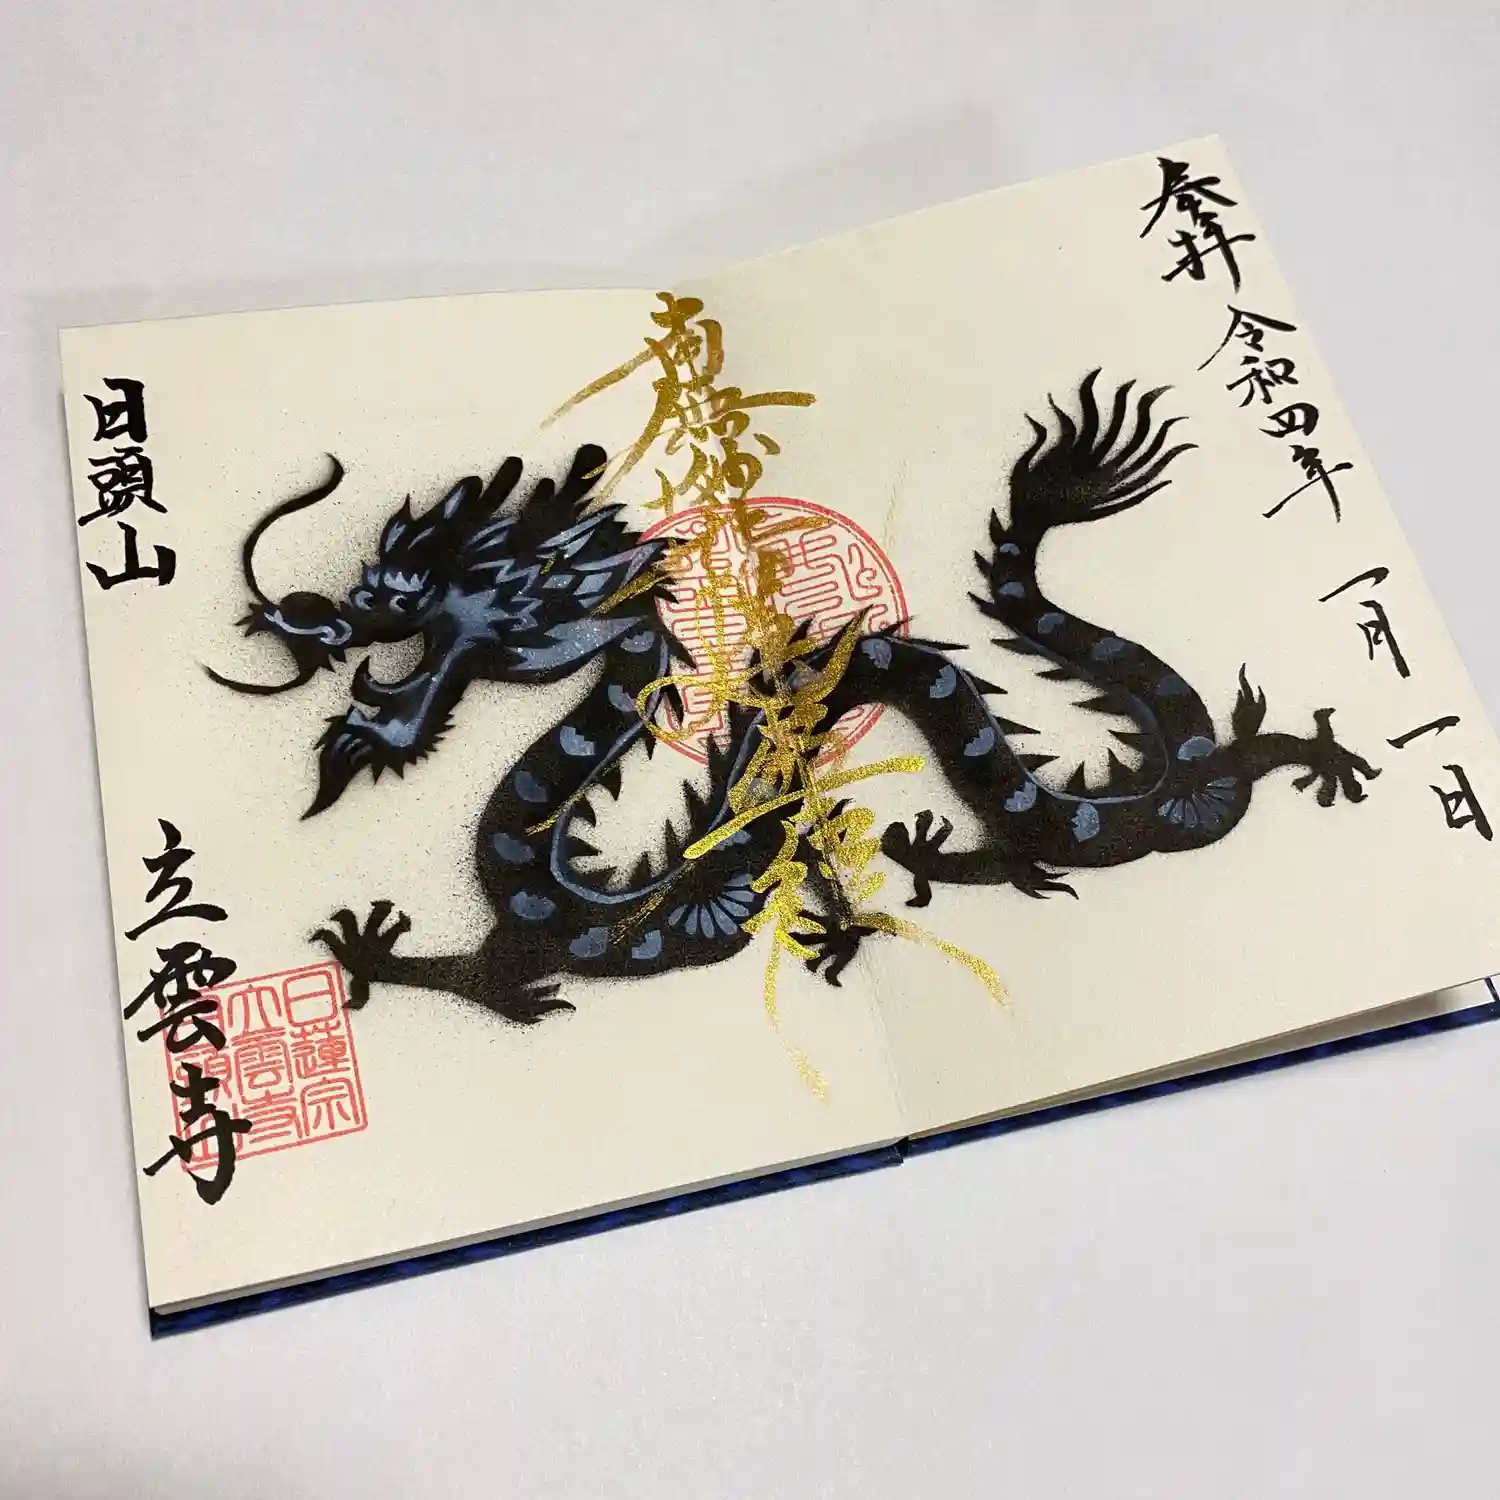 奉拝
令和四年
一月
一日
南無妙法蓮華経
日頭山
立雲寺
日蓮宗
立雲寺